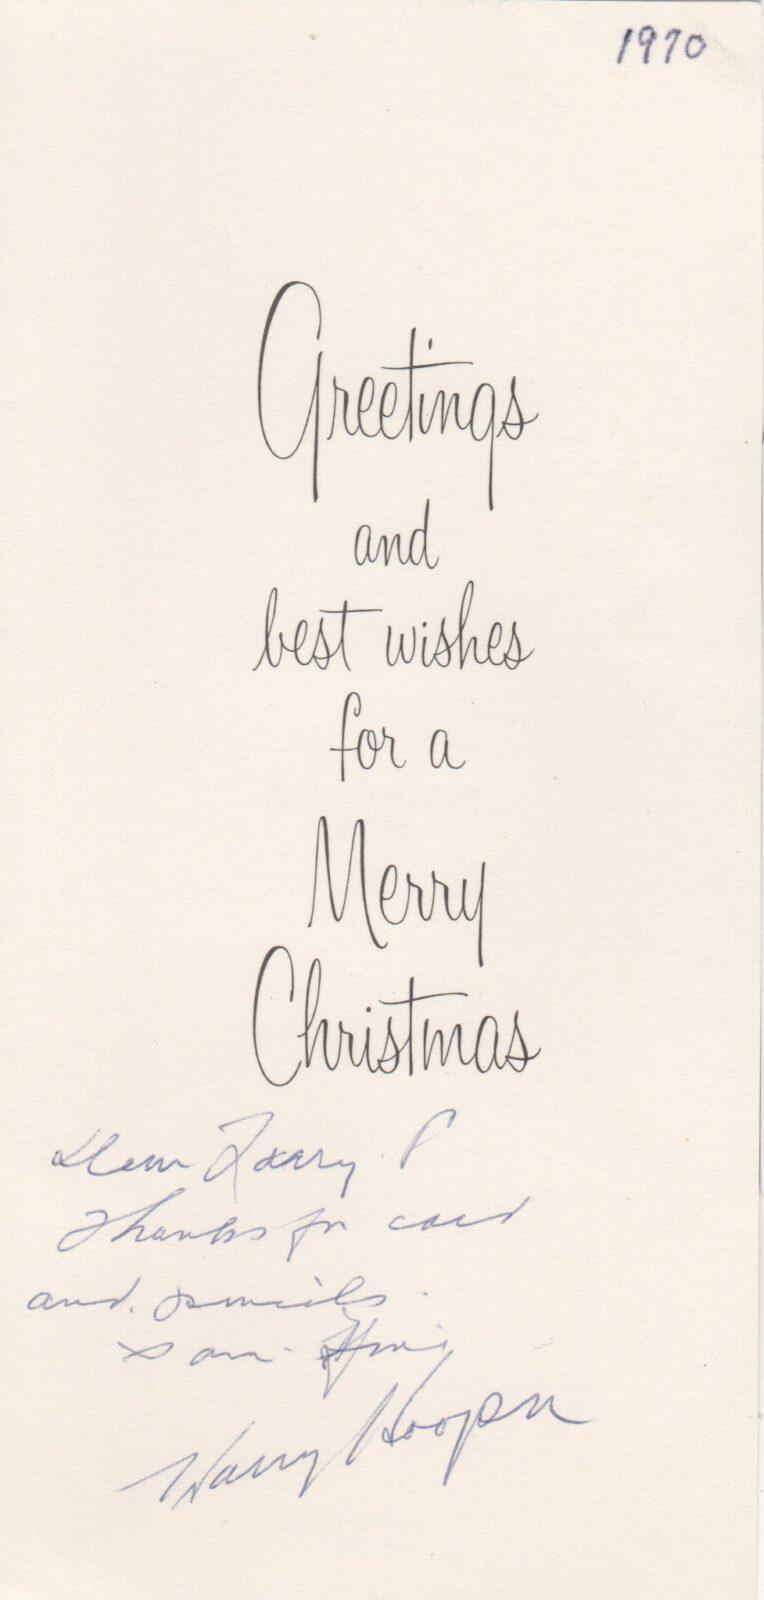 1970
Greetings
and
best wishes
for a
Merry
Christmas
Dear Larry P
Thanks for card
and. pencils.
I am fine
Harry Hooper